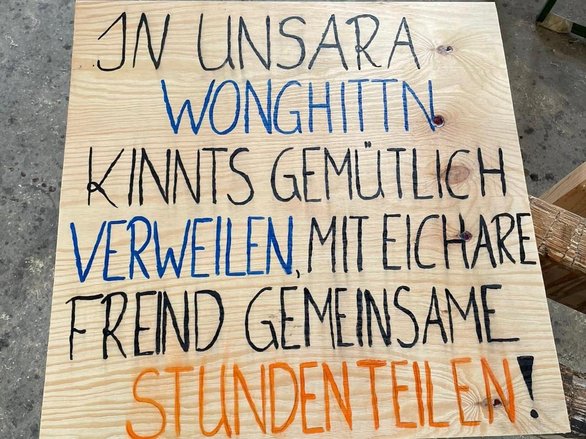 IN UNSARA
WONGHITTN
KINNTS GEMÜTLICH
VERWEILEN, MIT EICHARE
FREIND GEMEINSAME
STUNDEN TEILEN!